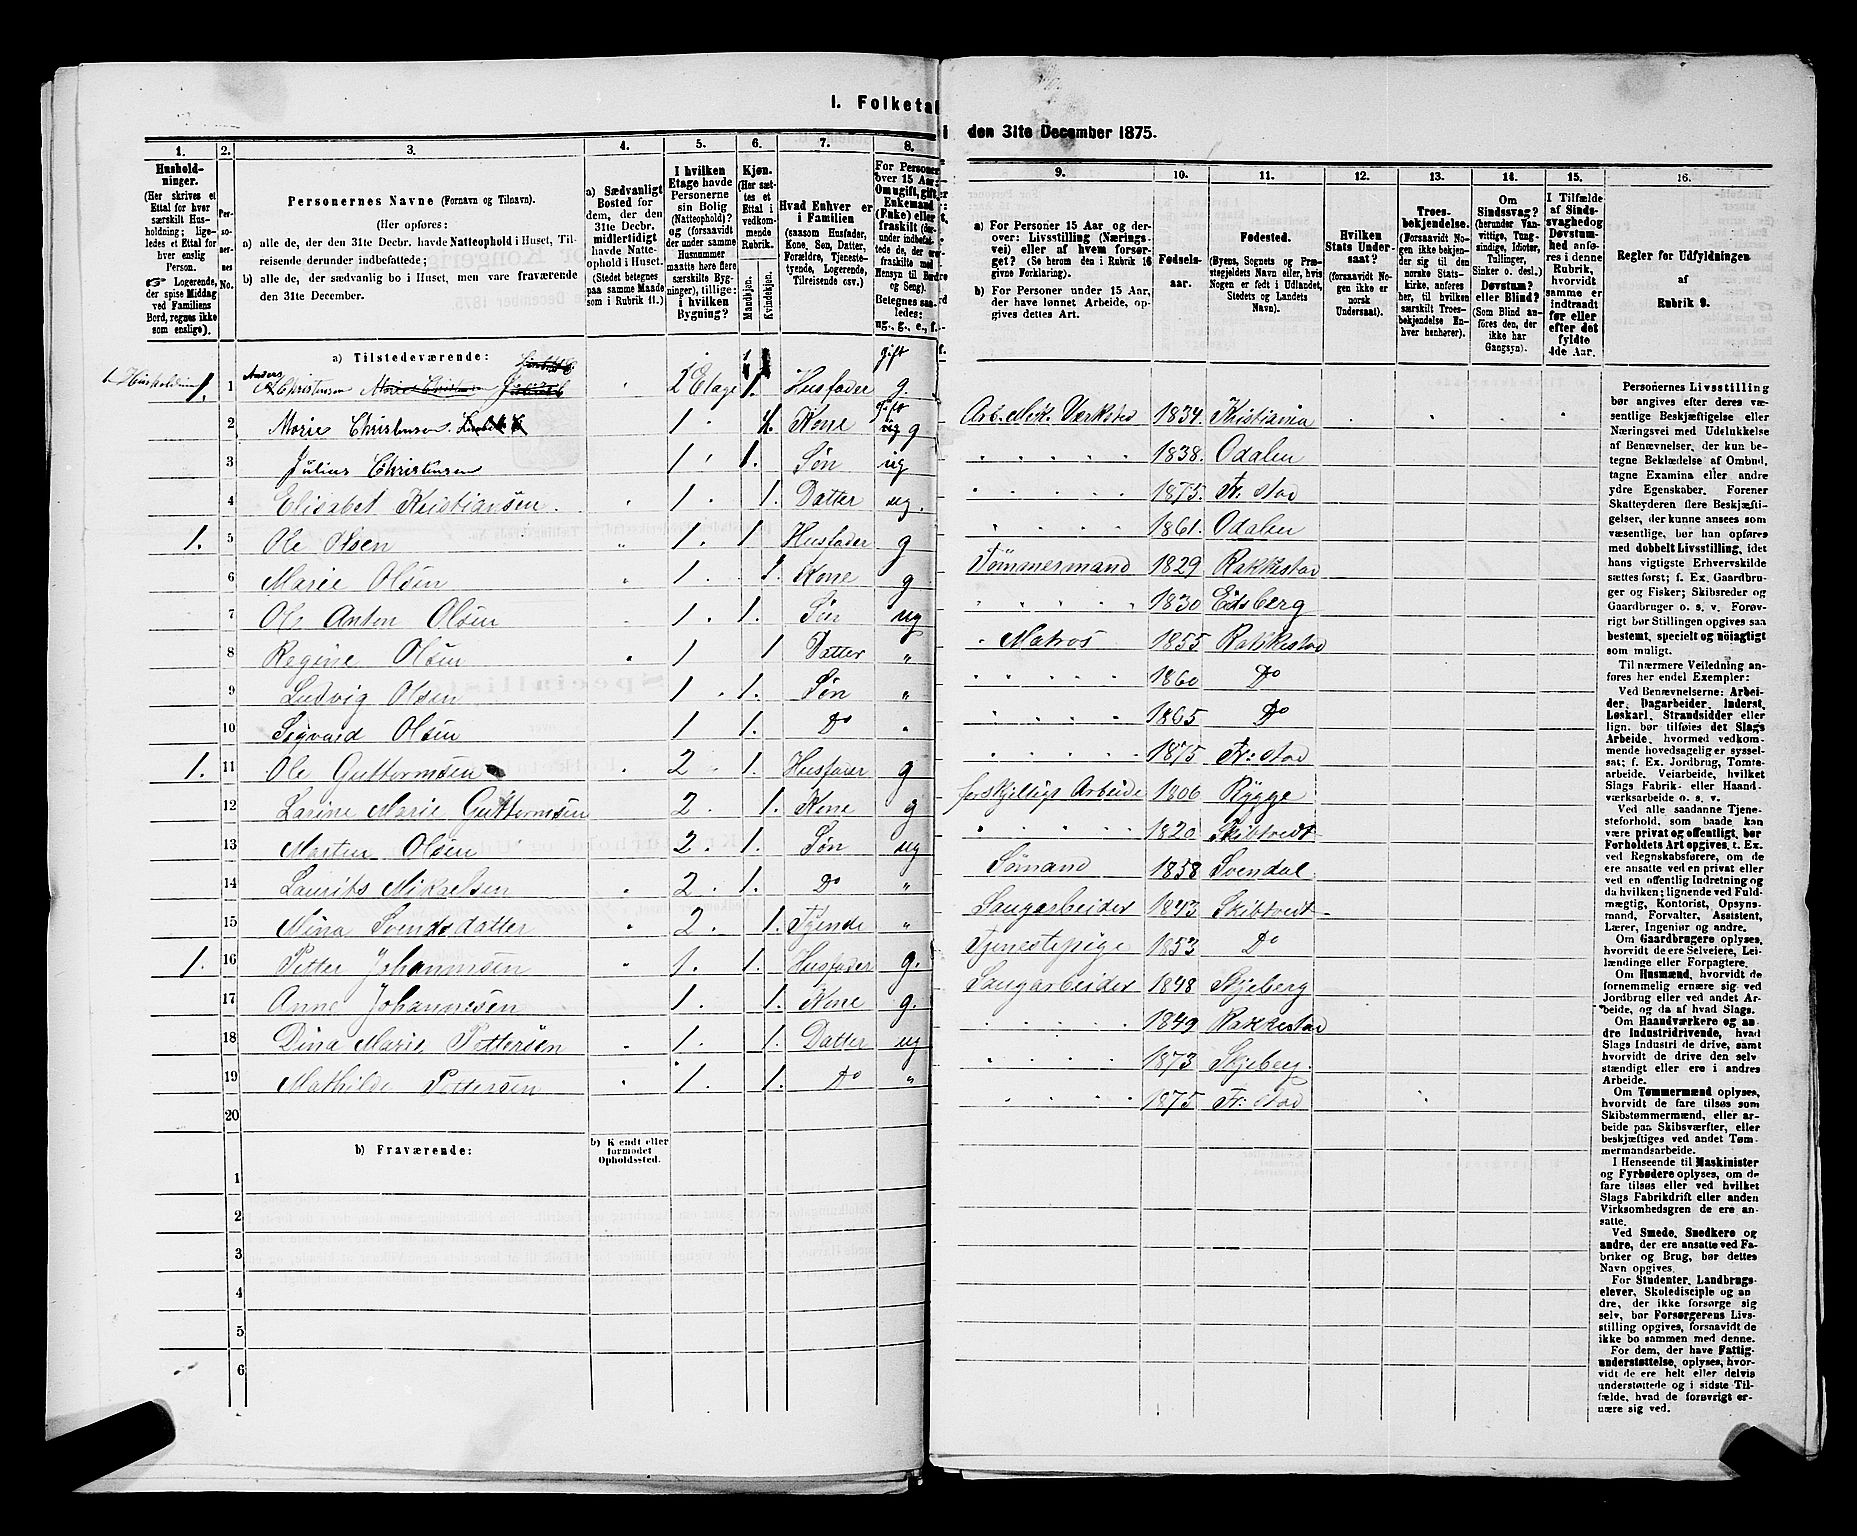 I. Folketal
i den 31te December 1875.
1. 2. 3. 4. 5. 6. 7. 8. 9. 10. 11. 12. 13. 14. 15. 16.
Hushold-
ninger.
(Her skrives et
Ettal for hver
særskilt Hus-
holdning; lige-
ledes et Ettal for
hver enslig
Person.
☞ Logerende,
der spise Middag
ved Familiens
Bord, regnes ikke
som enslige).
Per-
so-
ner-
nes
No.
Personernes Navne (Fornavn og Tilnavn).
(Her opføres:
a) alle de, der den 31te Decbr. havde Natteophold i Huset, Til-
reisende derunder indbefattede;
b) alle de, der sædvanlig bo i Huset, men vare fraværende
den 31te December.
a) Sædvanligt
Bosted for
dem, der den
31te Decbr.
midlertidigt
havde Natte-
ophold i Huset.
(Stedet betegnes
paa samme Maade
som i Rubrik 11.)
I hvilken
Etage havde
Personerne
sin Bolig
(Natteophold)?
og (forsaavidt
der under samme
Husnummer
maatte høre flere
særskilte Byg-
ninger), tillige:
i hvilken
Bygning?
Kjøn.
(Her sæt-
tes et
Ettal i
vedkom-
mende
Rubrik.
Mandkjøn.
Kvindekjøn.
Hvad Enhver er
i Familien
(saasom Husfader,
Kone, Søn, Datter,
Forældre, Tjeneste-
tyende, Logerende,
Tilreisende osv.)
For Personer
over 15 Aar:
Om ugift, gift,
Enkemand
(Enke) eller
fraskilt
Betegnes saa-
ledes:
ug., g., e., f.
a) For Personer 15 Aar og der-
over: Livsstilling (Nærings-
vei) eller af hvem forsør-
get? (Se herom den i Rubrik 16
givne Forklaring).
b) For Personer under 15 Aar,
der have lønnet Arbeide, op-
gives dettes Art.
Fødsels-
aar.
Fødested.
(Byens, Sognets og Præ-
stegjeldets Navn eller, hvis
Nogen er født i Udlandet,
Stedets og Landets
Navn).
Hvilken
Stats Under-
saat?
(forsaavidt No-
gen ikke er
norsk
Undersaat).
Troes-
bekjendelse.
(Forsaavidt No-
gen ikke bekjen-
der sig til den
norske Stats-
kirke, anføres
her, til hvilken
særskilt Troes-
bekjendelse En-
hver henhører).
Om
Sindssvag?
(herunder Van-
vittige, Tung-
sindige, Idioter,
Tullinger,
Sinker o. desl.)
Døvstum?
eller Blind?
(Som Blind an-
føres den, der
ikke har
Gangsyn).
I Tilfælde
af Sinds-
svaghed og
Døvstum-
hed anfø-
res i denne
Rubrik,
hvorvidt
samme er
indtraadt
før eller
efter det
fyldte
4de Aar.
Regler for Udfyldningen
af
Rubrik 9.
a) Tilstedeværende:
1. 1 Anders Christensen 2 Etage 1. Husfader gift g.
2 Marie Christensen 1 1. Kone gift g Arb. Mek. Værksted 1834. Kristiania
3 Julius Christensen 1 1. Søn ug " " " " 1838. Odalen
4 Elisabet Kristiansen. 1. 1. Datter ug. " " " " 1875. Fr. stad
1. 5 Ole Olsen 1. 1 Husfader g " " " " 1861. Odalen
6 Marie Olsen 1. 1. Kone g Tømmermand 1829 Rakkestad
7 Ole Anton Olsen 1. 1. Søn ug " " " " 1830 Edsberg
8 Regine Olsen 1 1 Datter " " Matros 1855 Rakkestad
9 Ludvig Olsen 1 1. Søn " 1860 Do
10 Sigvard Olsen 1 1. Do " " " " " 1865 Do
1. 11 Ole Guttormsen 2 1. Husfader g " " " " 1875 Fr: stad
12 Larine Marie Guttormsen 2. 1. Kone g forskjelligt Arbeide 1806 Rygge
13 Morten Olsen 2. 1. Søn ug " " " " 1820 Skibtvedt
14 Laurits Mikaelsen 2. 1. Do " Sømand 1858 Svendal
15 Mina Svendsdatter 2. 1. Tyende " Saugarbeider 1843 Skibtvedt
1. 16 Petter Johannesen 1. 1. Husfader g. Tjenestepige 1853 Do
17 Anne Johannesen 1. 1. Kone g. Saugarbeider 1848 Skjeberg
18 Dina Marie Pettersen 1. 1. Datter ug " " " " 1849 Rakkestad
19 Mathilde Pettersen 1. 1. Do " " " " " 1873 Skjeberg.
20 " " " " 1875 Fr: stad
b) Fraværende:
b) Kjendt eller
formodet
Opholdssted.
1
2
3
4
5
6
Personernes Livsstilling
bør angives efter deres væ-
sentlige Beskjæftigelse eller
Næringsvei med Udelukkelse
af Benævnelser, der kun be-
tegne Beklædelse af Ombud,
tagne Examina eller andre
ydre Egenskaber. Forener
Skatteyderen flere Beskjæfti-
gelser, der kunne ansees som
væsentlige, bør han opføres
med dobbelt Livsstilling, idet
hans vigtigste Erhvervskilde
sættes først; f. Ex. Gaardbru-
ger og Fisker; Skibsreder og
Gaardbruger o. s. v. Forøv-
rigt bør Stillingen opgives saa
bestemt, specielt og nøiagtigt
som muligt.
Til nærmere Veiledning an-
føres her endel Exempler:
Ved Benævnelserne: Arbei-
der, Dagarbeider, Inderst,
Løskarl, Strandsidder eller
lign. bør tilføies det Slags
Arbeide, hvormed vedkom-
mende hovedsagelig er syssel-
sat; f. Ex. Jordbrug, Tomte-
arbeide, Veiarbeide, hvilket
Slags Fabrik- eller Haand-
værksarbeide o. s. v.
Ved alle saadanne Tjene-
steforhold, som baade kan
være privat og offentligt, bør
Forholdets Art opgives, t. Ex.
ved Regnskabsførere, om de
ere ansatte ved en privat eller
ved en offentlig Indretning og
da hvilken; lignende ved Fuld-
mægtig, Kontorist, Opsyns-
mand, Forvalter, Assistent,
Lærer, Ingeniør og andre.
Om Gaardbrugere oplyses,
hvorvidt de ere Selveiere, Lei-
lændinge eller Forpagtere.
Om Husmænd, hvorvidt de
fornemmelig ernære sig ved
Jordbrug eller ved andet Ar-
beide, og da af hvad Slags.
Om Haandværkere og an-
dre Industridrivende, hvad
Slags Industri de drive, samt
hvorvidt de drive den selv-
stændigt eller ere i andres
Arbeide.
Om Tømmermænd oplyses,
hvorvidt de fare tilsøs som
Skibstømmermænd, eller ar-
beide paa Skibsværfter, eller
beskjæftiges ved andet Tøm-
mermandsarbeide.
I Henseende til Maskinister
og Fyrbødere oplyses, om de
fare tilsøs eller ved hvilket
Slags Fabrikdrift eller anden
Virksomhedsgren de ere an-
satte.
Ved Smede, Snedkere og
andre, der ere ansatte ved Fa-
briker og Brug, bør dettes
Navn opgives.
For Studenter, Landbrugs-
elever, Skoledisciple og an-
dre, der ikke forsørge sig
selv, bør Forsørgerens Livs-
stilling opgives, forsaavidt de
ikke bo sammen med denne.
For dem, der have Fattig-
understøttelse, oplyses, hvor-
vidt de ere helt eller delvis
understøttede og i sidste Til-
fælde, hvad de forøvrigt er-
nære sig ved.